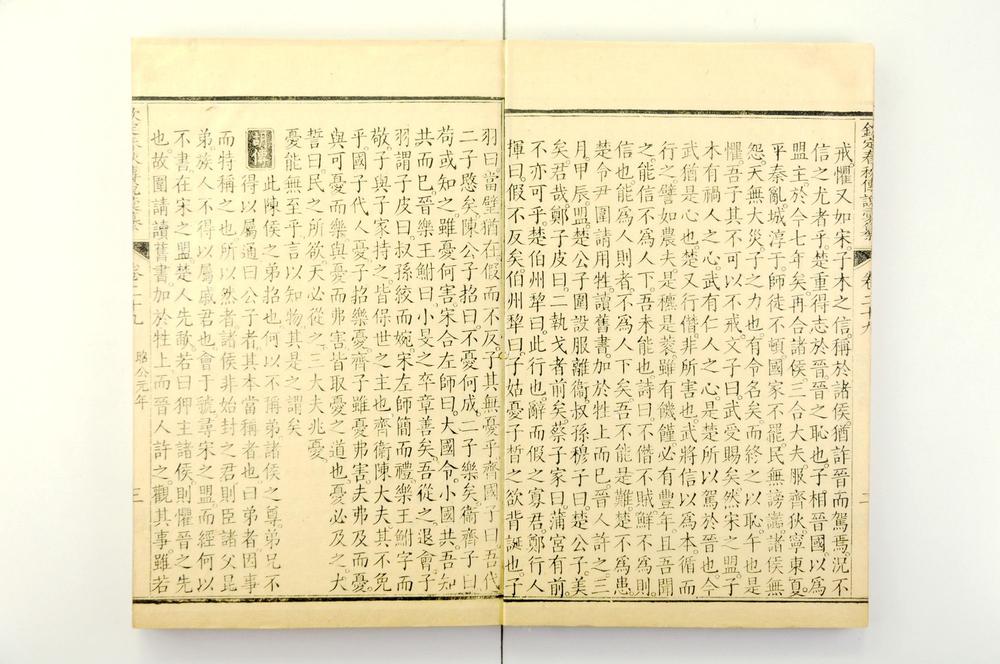 欽定春秋傳說彙纂 卷二十九 二
戒懼又如宋。子木之信稱於諸侯。猶詐晉而駕焉。況不
信之尤者乎。楚重得志於晉。晉之恥也。子相晉國。以爲
盟主。於今七年矣。再合諸侯。三合大夫。服齊狄。寧東夏。
平秦亂。城淳于。師徒不頓。國家不罷。民無謗讟。諸侯無
怨。天無大災。子之力也。有令名矣。而終之以恥。午也是
懼。吾子其不可以不戒。文子曰。武受賜矣。然宋之盟。子
木有禍人之心。武有仁人之心。是楚所以駕於晉也。今
武猶是心也。楚又行僭。非所害也。武將信以爲本。循而
行之。譬如農夫。是穮是蔉。雖有饑饉。必有豐年。且吾聞
之。能信不爲人下。吾未能也。詩曰。不僭不賊。鮮不爲則。
信也。能爲人則者。不爲人下矣。吾不能是難。楚不爲患。
楚令尹圍請用牲。讀舊書。加於牲上而已。晉人許之。三
月甲辰盟。楚公子圍設服離衛。叔孫穆子曰。楚公子美
矣君哉。鄭子皮曰。二執戈者前矣。蔡子家曰。蒲宮有前。
不亦可乎。楚伯州犁曰。此行也。辭而假之寡君。鄭行人
揮曰。假不反矣。伯州犁曰。子姑憂子晳之欲背誕也。子
羽曰。當璧猶在。假而不反。子其無憂乎。齊國子曰。吾代
二子愍矣。陳公子招曰。不憂何成。二子樂矣。衞齊子曰。
苟或知之。雖憂何害。宋合左師曰。大國令。小國共。吾知
共而已。晉樂王鮒曰。小旻之卒章善矣。吾從之。退會。子
羽謂子皮曰。叔孫絞而婉。宋左師簡而禮。樂王鮒字而
敬。子與子家持之。皆保世之主也。齊衞陳大夫其不免
乎。國子代人憂。子招樂憂。齊子雖憂弗害。夫弗及而憂。
與可憂而樂。與憂而弗害。皆取憂之道也。憂必及之。大
誓曰。民之所欲。天必從之。三大夫兆憂。
憂能無至乎。言以知物。其是之謂矣
胡傳 此陳侯之弟招也。何以不稱弟。諸侯之尊。弟兄不
得以屬通。曰公子者。其本當稱者也。曰弟者。因事
而特稱之也。所以然者。諸侯非始封之君。則臣諸父昆
弟。族人不得以屬戚君也。會于虢。尋宋之盟。而經何以
不書。在宋之盟。楚人先歃。若曰狎主諸侯。則懼晉之先
也。故圍請讀舊書。加於牲上。而晉人許之。觀其事。雖若
卷二十九 昭公元年 三